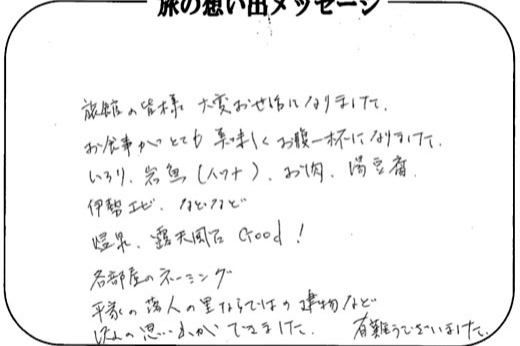 旅の想い出メッセージ
旅館の皆様 大変お世話になりました。
お食事がとても美味しくお腹一杯になりました。
いろり、岩魚(イワナ)、お肉、湯豆腐、
伊勢エビ、などなど
温泉、露天風呂 Good!
各部屋のネーミング
平家の落人の里ならではの建物など
思い がができました。 有難うございました。